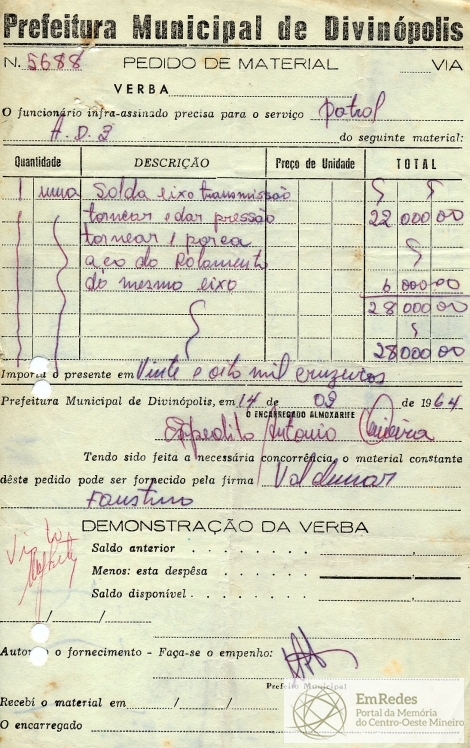 Prefeitura Municipal de Divinópolis
N. 5688 PEDIDO DE MATERIAL VIA
VERBA
O funcionário infra-assinado precisa para o serviço patrol
A.D.3 do seguinte material:
Quantidade DESCRIÇÃO Preço de Unidade TOTAL
1 uma Solda eixo transmissão
tornear e dar pressão 22 000 00
tornear 1 porca
aço do Rolamento
do mesmo eixo 6 000 00
28 000 00
28 000 00
Importa o presente em Vinte e oito mil cruzeiros
Prefeitura Municipal de Divinópolis, em 14 de 09 de 1964
O ENCARREGADO ALMOXARIFE
Expedito Antonio
Tendo sido feita a necessária concorrência, o material constante
dêste pedido pode ser fornecido pela firma Valdemar
Faustino
DEMONSTRAÇÃO DA VERBA
Saldo anterior
Menos: esta despêsa
Saldo disponível
Autorizo o fornecimento - Faça-se o empenho:
Prefeito Municipal
Recebí o material em / /
O encarregado
EmRedes
Portal da Memória
do Centro-Oeste Mineiro